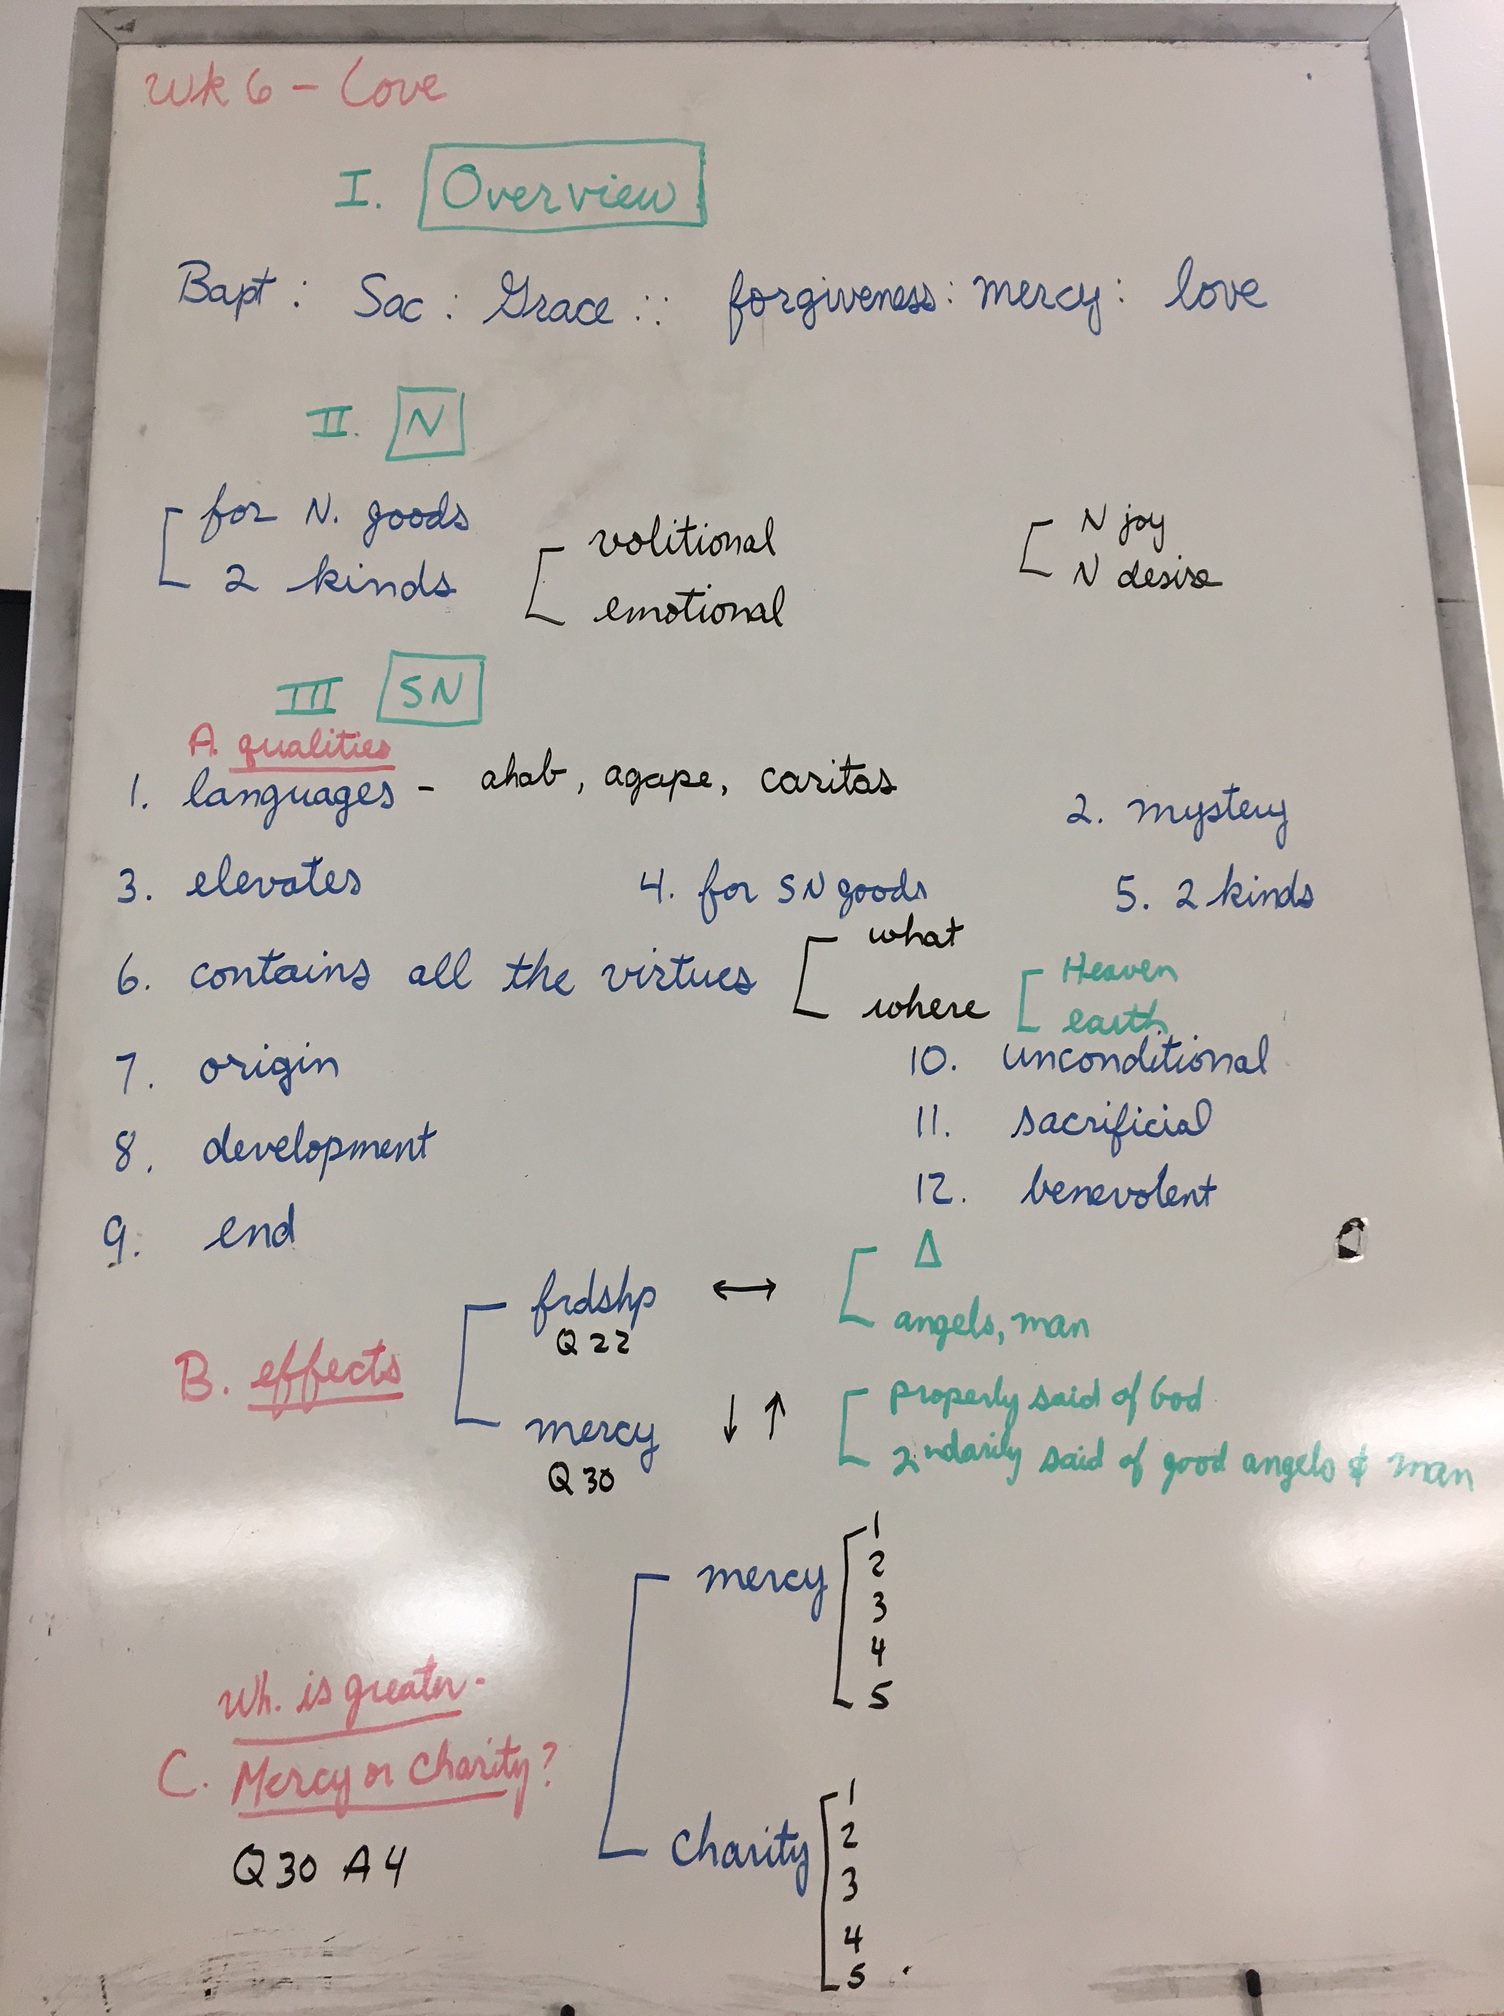 Wk 6 - Love
I. Overview
Bapt : Sac : Grace :: forgiveness : mercy : love
II. N
for N. goods
2 kinds
volitional
emotional
N joy
N desire
III SN
A. qualities
1. languages - ahab, agape, caritas
2. mystery
3. elevates
4. for SN goods
5. 2 kinds
6. contains all the virtues
what
where
Heaven
earth
7. origin
8. development
9. end
10. unconditional
11. sacrificial
12. benevolent
B. effects
frdshp ↔
Q 22
Δ
angels, man
mercy ↓ ↑
Q 30
properly said of God
2ndarily said of good angels & man
C. Wh. is greater -
Mercy or Charity?
Q 30 A 4
mercy
1
2
3
4
5
Charity
1
2
3
4
5